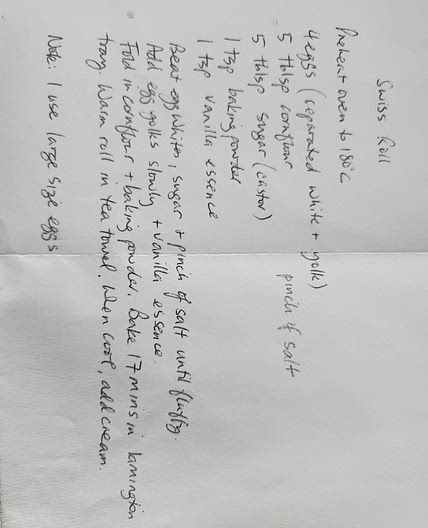 Swiss Roll
Preheat oven to 180°C
4 eggs (separated white + yolk)
5 tblsp cornflour
pinch of salt
5 tblsp sugar (castor)
1 tsp baking powder
1 tsp vanilla essence
Beat egg whites, sugar + pinch of salt until fluffy.
Add egg yolks slowly + vanilla essence.
Fold in cornflour + baking powder. Bake 17 mins in lamington
tray. Warm roll in tea towel. When cool, add cream.
Note: I use large size eggs